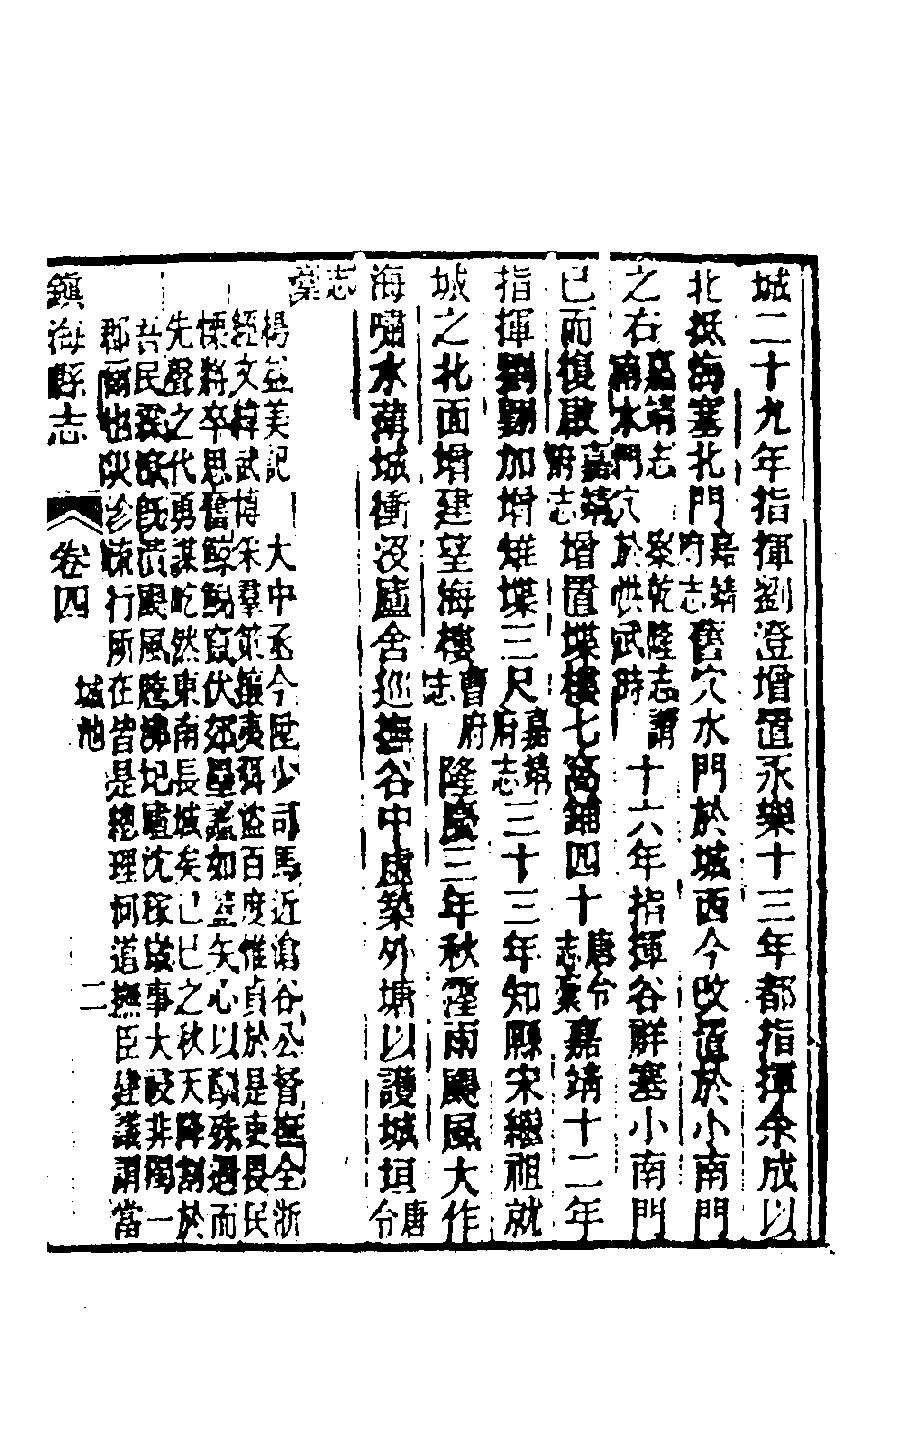 城二十九年指揮劉澄增置永樂十三年都指揮余成以
北抵海塞北門嘉靖府志舊穴水門於城西今改置於小南門
之右嘉靖志南水門穴於洪武時案乾隆志謂十六年指揮谷祥塞小南門
已而復啟嘉靖府志增置堞樓七窩鋪四十唐令志藁嘉靖十二年
指揮劉翺加增雉堞三尺嘉靖府志三十三年知縣宋繼祖就
城之北面增建望海樓曹府志隆慶三年秋霪雨颶風大作
海嘯水薄城衝沒廬舍巡撫谷中虛築外塘以護城垣唐令
志藁
楊益美記 大中丞今陞少司馬近滄谷公督撫全浙
經文緯武博采羣策攘夷弭盜百度惟貞於是吏畏民
懷將卒思奮鯨鯢竄伏郊壘謐如益矢心以酬殊遇而
先聲之代勇謀屹然東南長城矣己巳之秋天降割於
吾民霪潦旣潰颶風騰沸圮廬沈稼歲事大祲非獨一
郡爾也災沴流行所在皆是總理河道撫臣建議謂當
鎮海縣志 卷四 城池 二